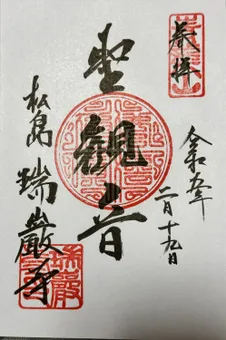 奉拝
令和五年
二月十九日
聖観音
松島
瑞巖寺